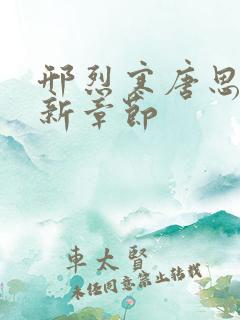 邢烈寒唐思
新章节
车太贤
未经同意禁止转载